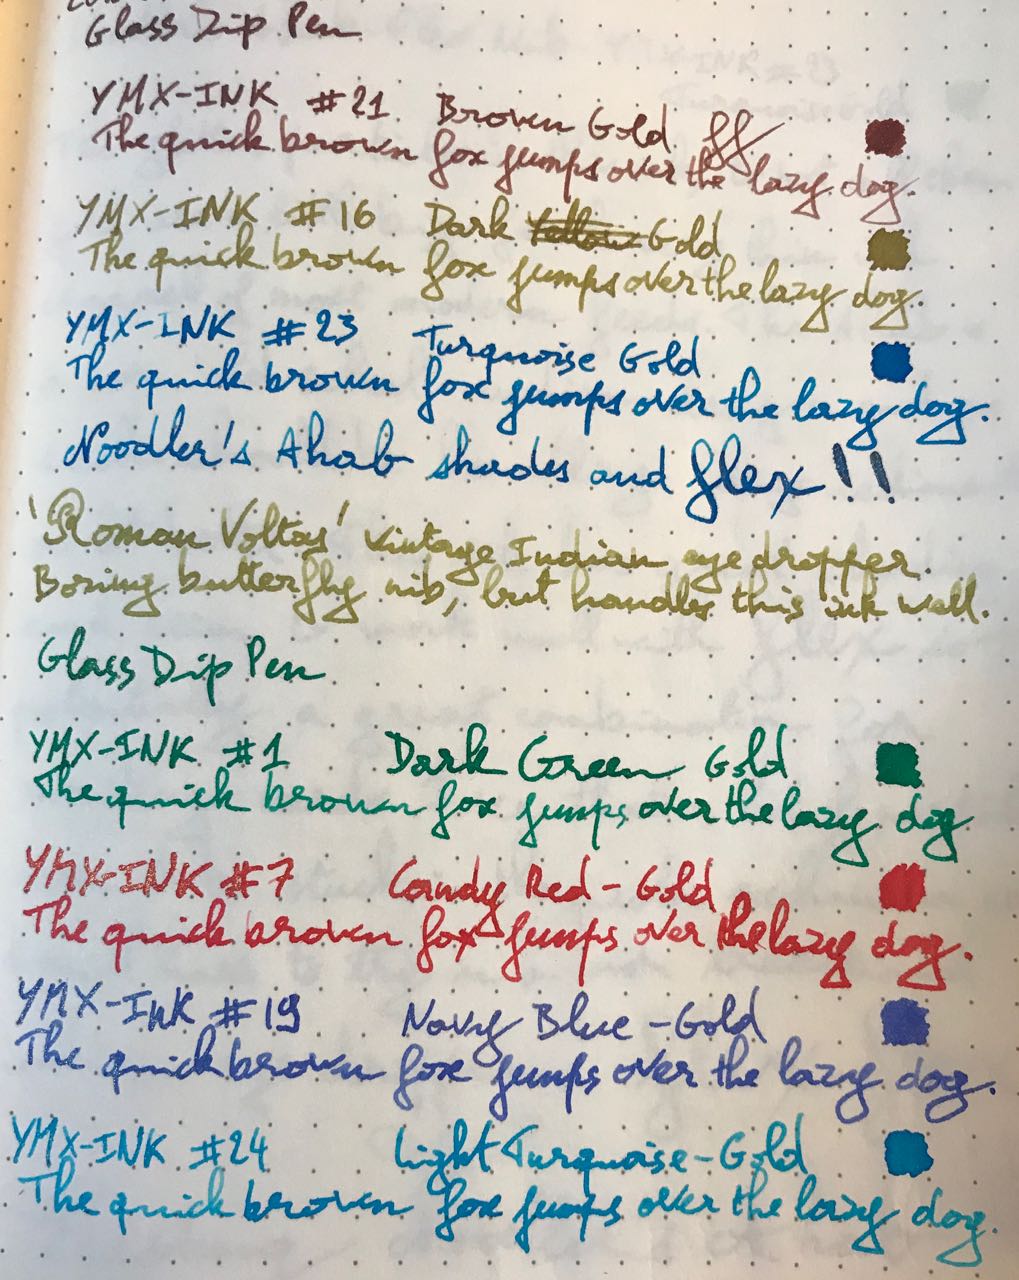 Glass Dip Pen
YMX-INK #21 Brown Gold ff
The quick brown fox jumps over the lazy dog.
YMX-INK #16 Dark Yellow Gold
The quick brown fox jumps over the lazy dog.
YMX-INK #23 Turquoise Gold
The quick brown fox jumps over the lazy dog.
Noodler's Ahab shades and flex !!
'Roman Voltas' vintage Indian eye dropper.
Boring butterfly nib, but handles this ink well.
Glass Dip Pen
YMX-INK #1 Dark Green Gold
The quick brown fox jumps over the lazy dog
YMX-INK #7 Candy Red - Gold
The quick brown fox jumps over the lazy dog.
YMX-INK #19 Navy Blue - Gold
The quick brown fox jumps over the lazy dog.
YMX-INK #24 Light Turquoise - Gold
The quick brown fox jumps over the lazy dog.